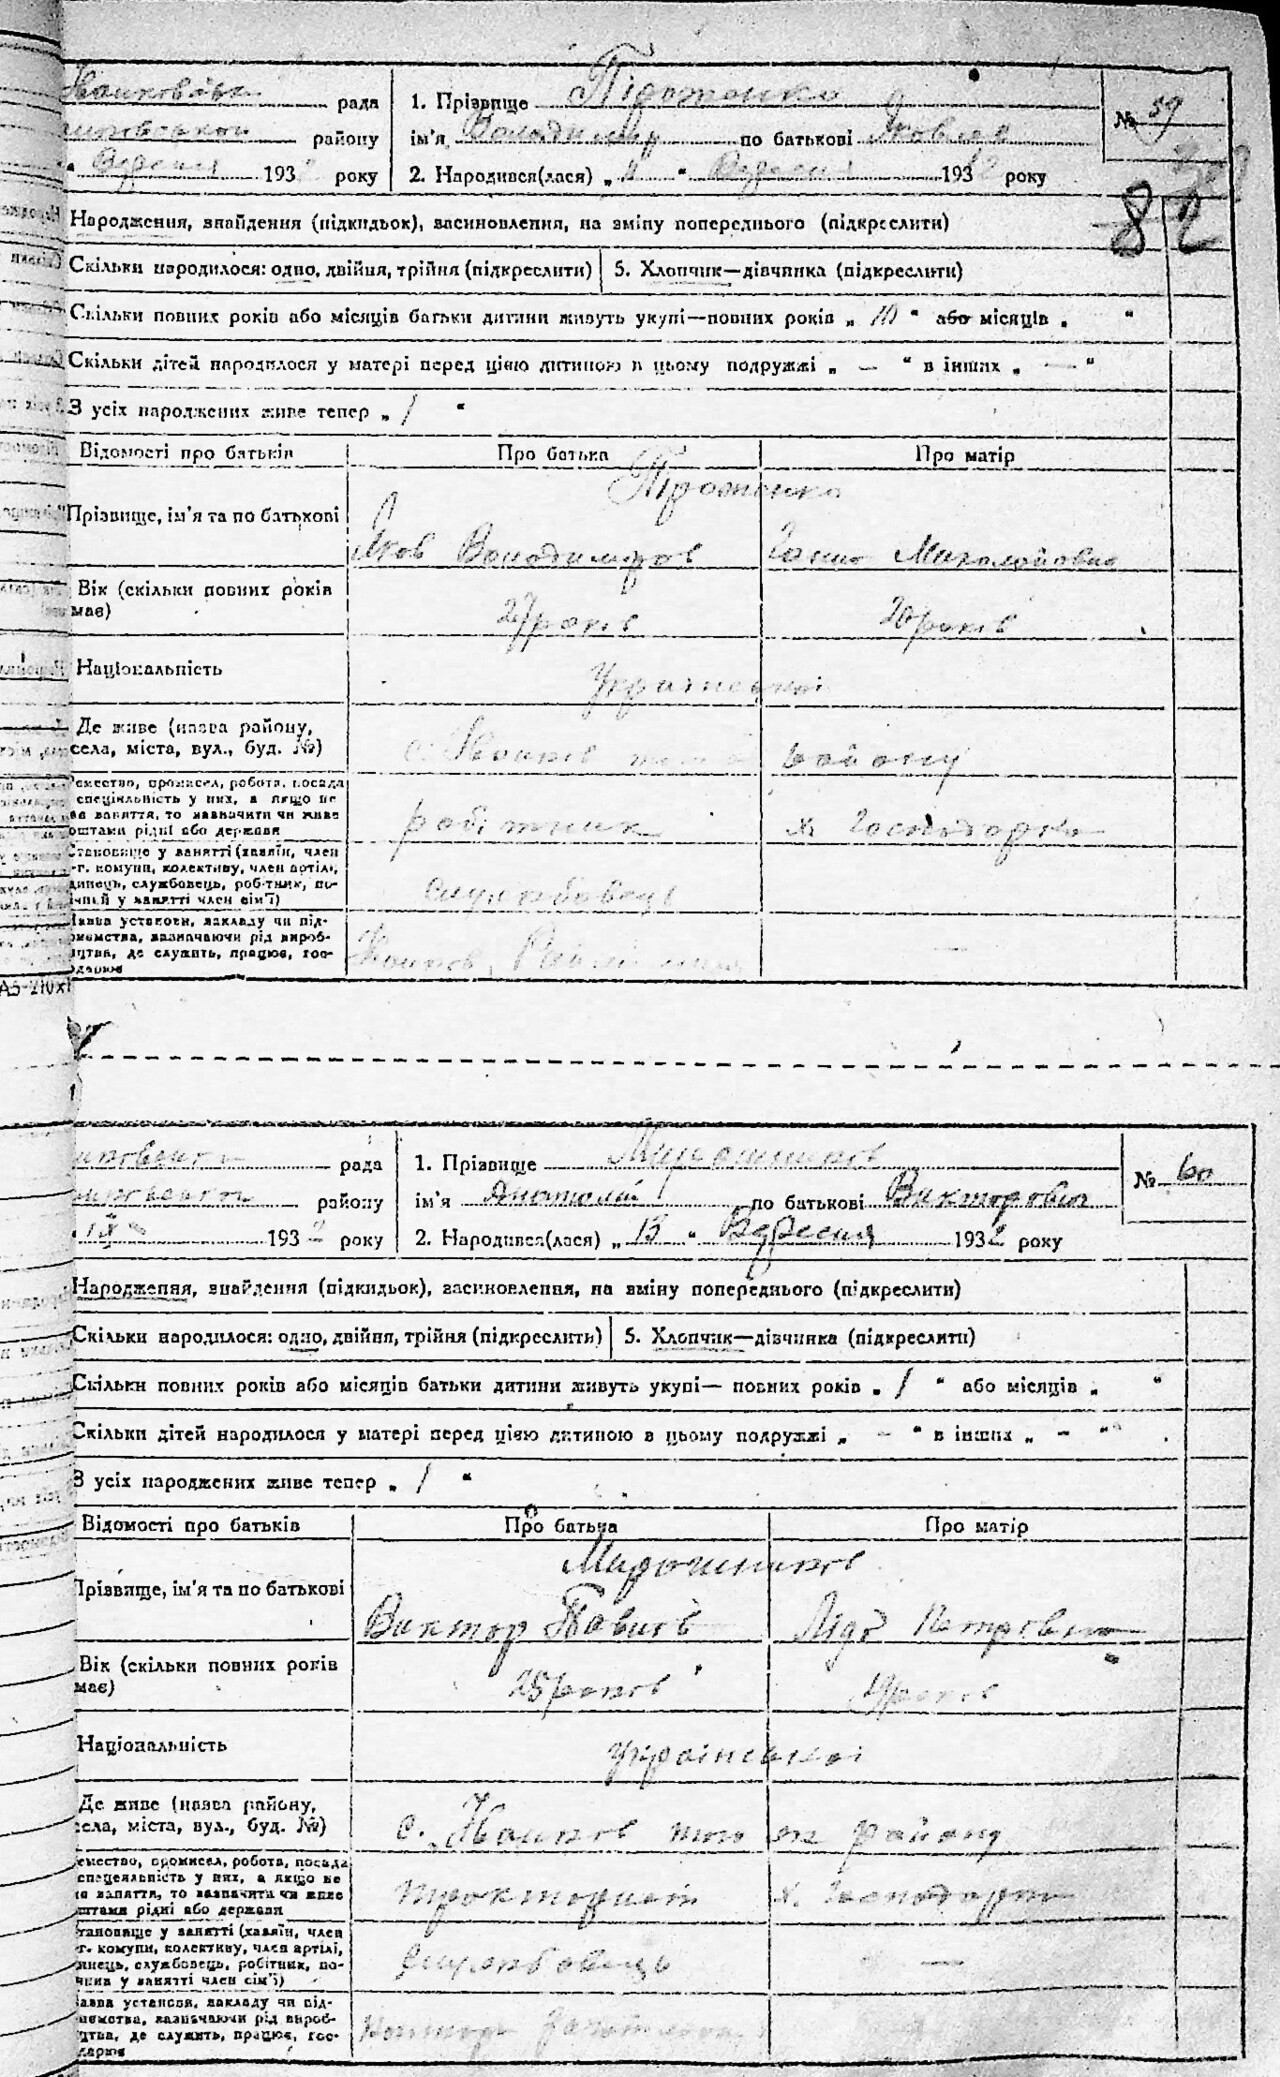 рада
1. Прізвище Підтоптонко
№ 59
району
ім'я Володимир по батькові Яковлев
Вересня 193 року
2. Народився(лася) „ 11 " Вересня 1932 року
82
Народження, знайдення (підкидьок), всиновлення, на зміну попереднього (підкреслити)
Скільки народилося: одно, двійня, трійня (підкреслити) 5. Хлопчик—дівчинка (підкреслити)
Скільки повних років або місяців батьки дитини живуть укупі—повних років „ " або місяців „ "
Скільки дітей народилося у матері перед цією дитиною в цьому подружжі „ — " в інших „ — "
З усіх народжених живе тепер „ 1 "
Відомості про батьків Про батька Про матір
Прізвище, ім'я та по батькові
Яков Володимиров Ганна Михайловна
Вік (скільки повних років
має)
27 років 20 років
Національність
Української
Де живе (назва району,
села, міста, вул., буд. №)
с. Іванків того району
ремество, промисел, робота, посада
спеціяльність у них, а якщо не
ва заняття, то зазначити чи живе
оштами рідні або держави
робітник х. Господарка
Становище у занятті (хазяїн, член
-г. комуни, колективу, член артілі,
динець, службовець, робітник, по-
ічний у занятті член сім'ї)
службовець
Назва установи, закладу чи під-
ємства, зазначаючи рід вироб-
цтва, де служить, працює, гос-
дарює
—
А5-210х1
рада
1. Прізвище Мирошников
№ 60
району
ім'я Анатолій по батькові Викторович
1932 року
2. Народився(лася) „ 13 " Вересня 1932 року
Народження, знайдення (підкидьок), всиновлення, на зміну попереднього (підкреслити)
Скільки народилося: одно, двійня, трійня (підкреслити) 5. Хлопчик—дівчинка (підкреслити)
Скільки повних років або місяців батьки дитини живуть укупі— повних років „ 1 " або місяців „ "
Скільки дітей народилося у матері перед цією дитиною в цьому подружжі „ — " в інших „ — "
З усіх народжених живе тепер „ 1 "
Відомості про батьків Про батька Про матір
Мирошников
Прізвище, ім'я та по батькові
Виктор Лідо Петровна
Вік (скільки повних років
має)
25 років 19 років
Національність
Української
Де живе (назва району,
села, міста, вул., буд. №)
с. Іванков того ж району
ремество, промисел, робота, посада
спеціяльність у них, а якщо не
ва заняття, то зазначити чи живе
штами рідні або держави
тракторист х. Господарка
тановище у занятті (хазяїн, член
-г. комуни, колективу, член артілі,
инець, службовець, робітник, по-
чний у занятті член сім'ї)
службовець —
азва установи, закладу чи під-
ємства, зазначаючи рід вироб-
цтва, де служить, працює, гос-
дарює